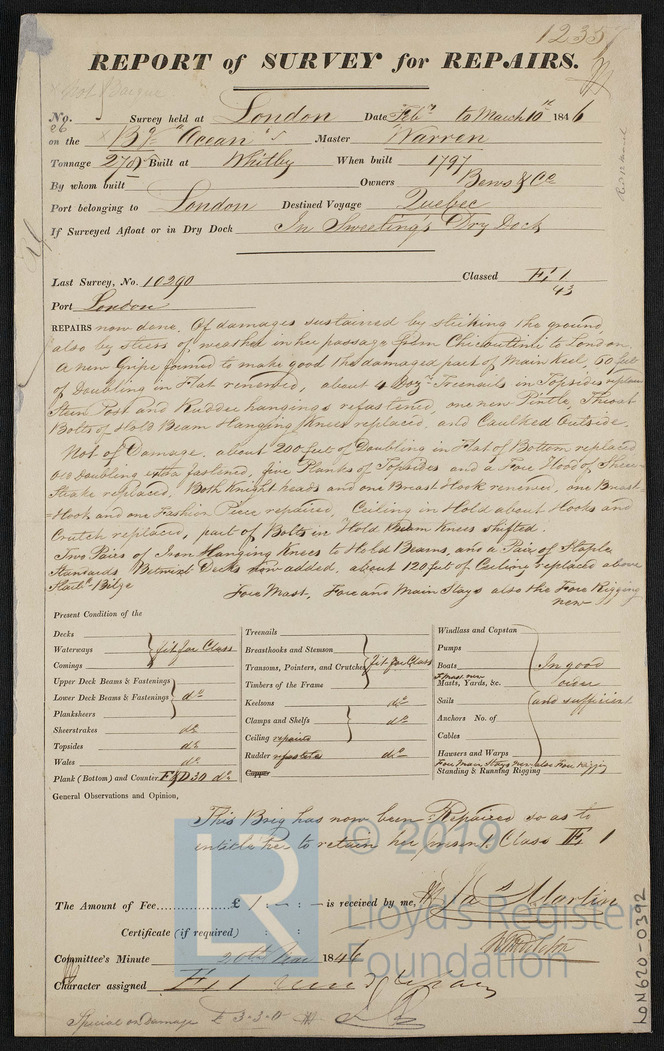 1235
REPORT of SURVEY for REPAIRS.
Not Barque
No. 26 Survey held at London Date Feby to March 10th 1846
on the Bg "Ocean" Master Warren
Tonnage 278 Built at Whitby When built 1797
By whom built Owners Bews & Co
Port belonging to London Destined Voyage Quebec
If Surveyed Afloat or in Dry Dock In Sweeting's Dry Dock
Last Survey, No. 10290 Classed E. 1
43
Port London
REPAIRS now done. Of damages sustained by striking the ground
also by stress of weather in her passage from Chicoutimi to London.
A new Gripe formed to make good the damaged part of Main Keel, 60 feet
of Doubling in Flat renewed, about 4 Dozn Treenails in Topsides replaced
Stern Post and Rudder hangings refastened, one new Pintle, Throat
Bolts of Hold Beam Hanging Knees replaced, and Caulked Outside.
Not of Damage. about 200 feet of Doubling in Flat of Bottom replaced
Old Doubling extra fastened, five Planks of Topsides and a Fore Hood of Sheer
Strake replaced, Both Knight heads and one Breast Hook renewed, one Breast
=Hook and one Fashion Piece repaired, Ceiling in Hold about Hooks and
Crutch replaced, part of Bolts in Hold Beam Knees shifted.
Two Pairs of Iron Hanging Knees to Hold Beams, and a Pair of Staple
Standards Betwixt Decks now added, about 120 feet of Ceiling replaced above
Starbd Bilge
Fore Mast, Fore and Main Stays also the Fore Rigging
new
Present Condition of the
Decks
Waterways fit for Class
Comings
Upper Deck Beams & Fastenings
Lower Deck Beams & Fastenings do
Planksheers
Sheerstrakes do
Topsides do
Wales do
Plank (Bottom) and Counter F&D 30 do
Treenails
Breasthooks and Stemson
Transoms, Pointers, and Crutches fit for Class
Timbers of the Frame
Keelsons do
Clamps and Shelfs do
Ceiling repaired
Rudder refastened do
Copper
Windlass and Capstan
Pumps
Boats In good
F mast new
Masts, Yards, &c. order
Sails and sufficient
Anchors No. of
Cables
Hawsers and Warps
Fore Main Stays new also Fore Rigging
Standing & Running Rigging
General Observations and Opinion,
This Brig has now been Repaired so as to
entitle her to retain her present Class E 1
© 2019
Lloyd's Register
Foundation
LR
The Amount of Fee.................£ 1 : - : - is received by me, Jas Martin
Certificate (if required) : :
Committee's Minute 20th Mar 1846
Character assigned E. 1
Special on Damage £ 3-3-0
LON620-0392